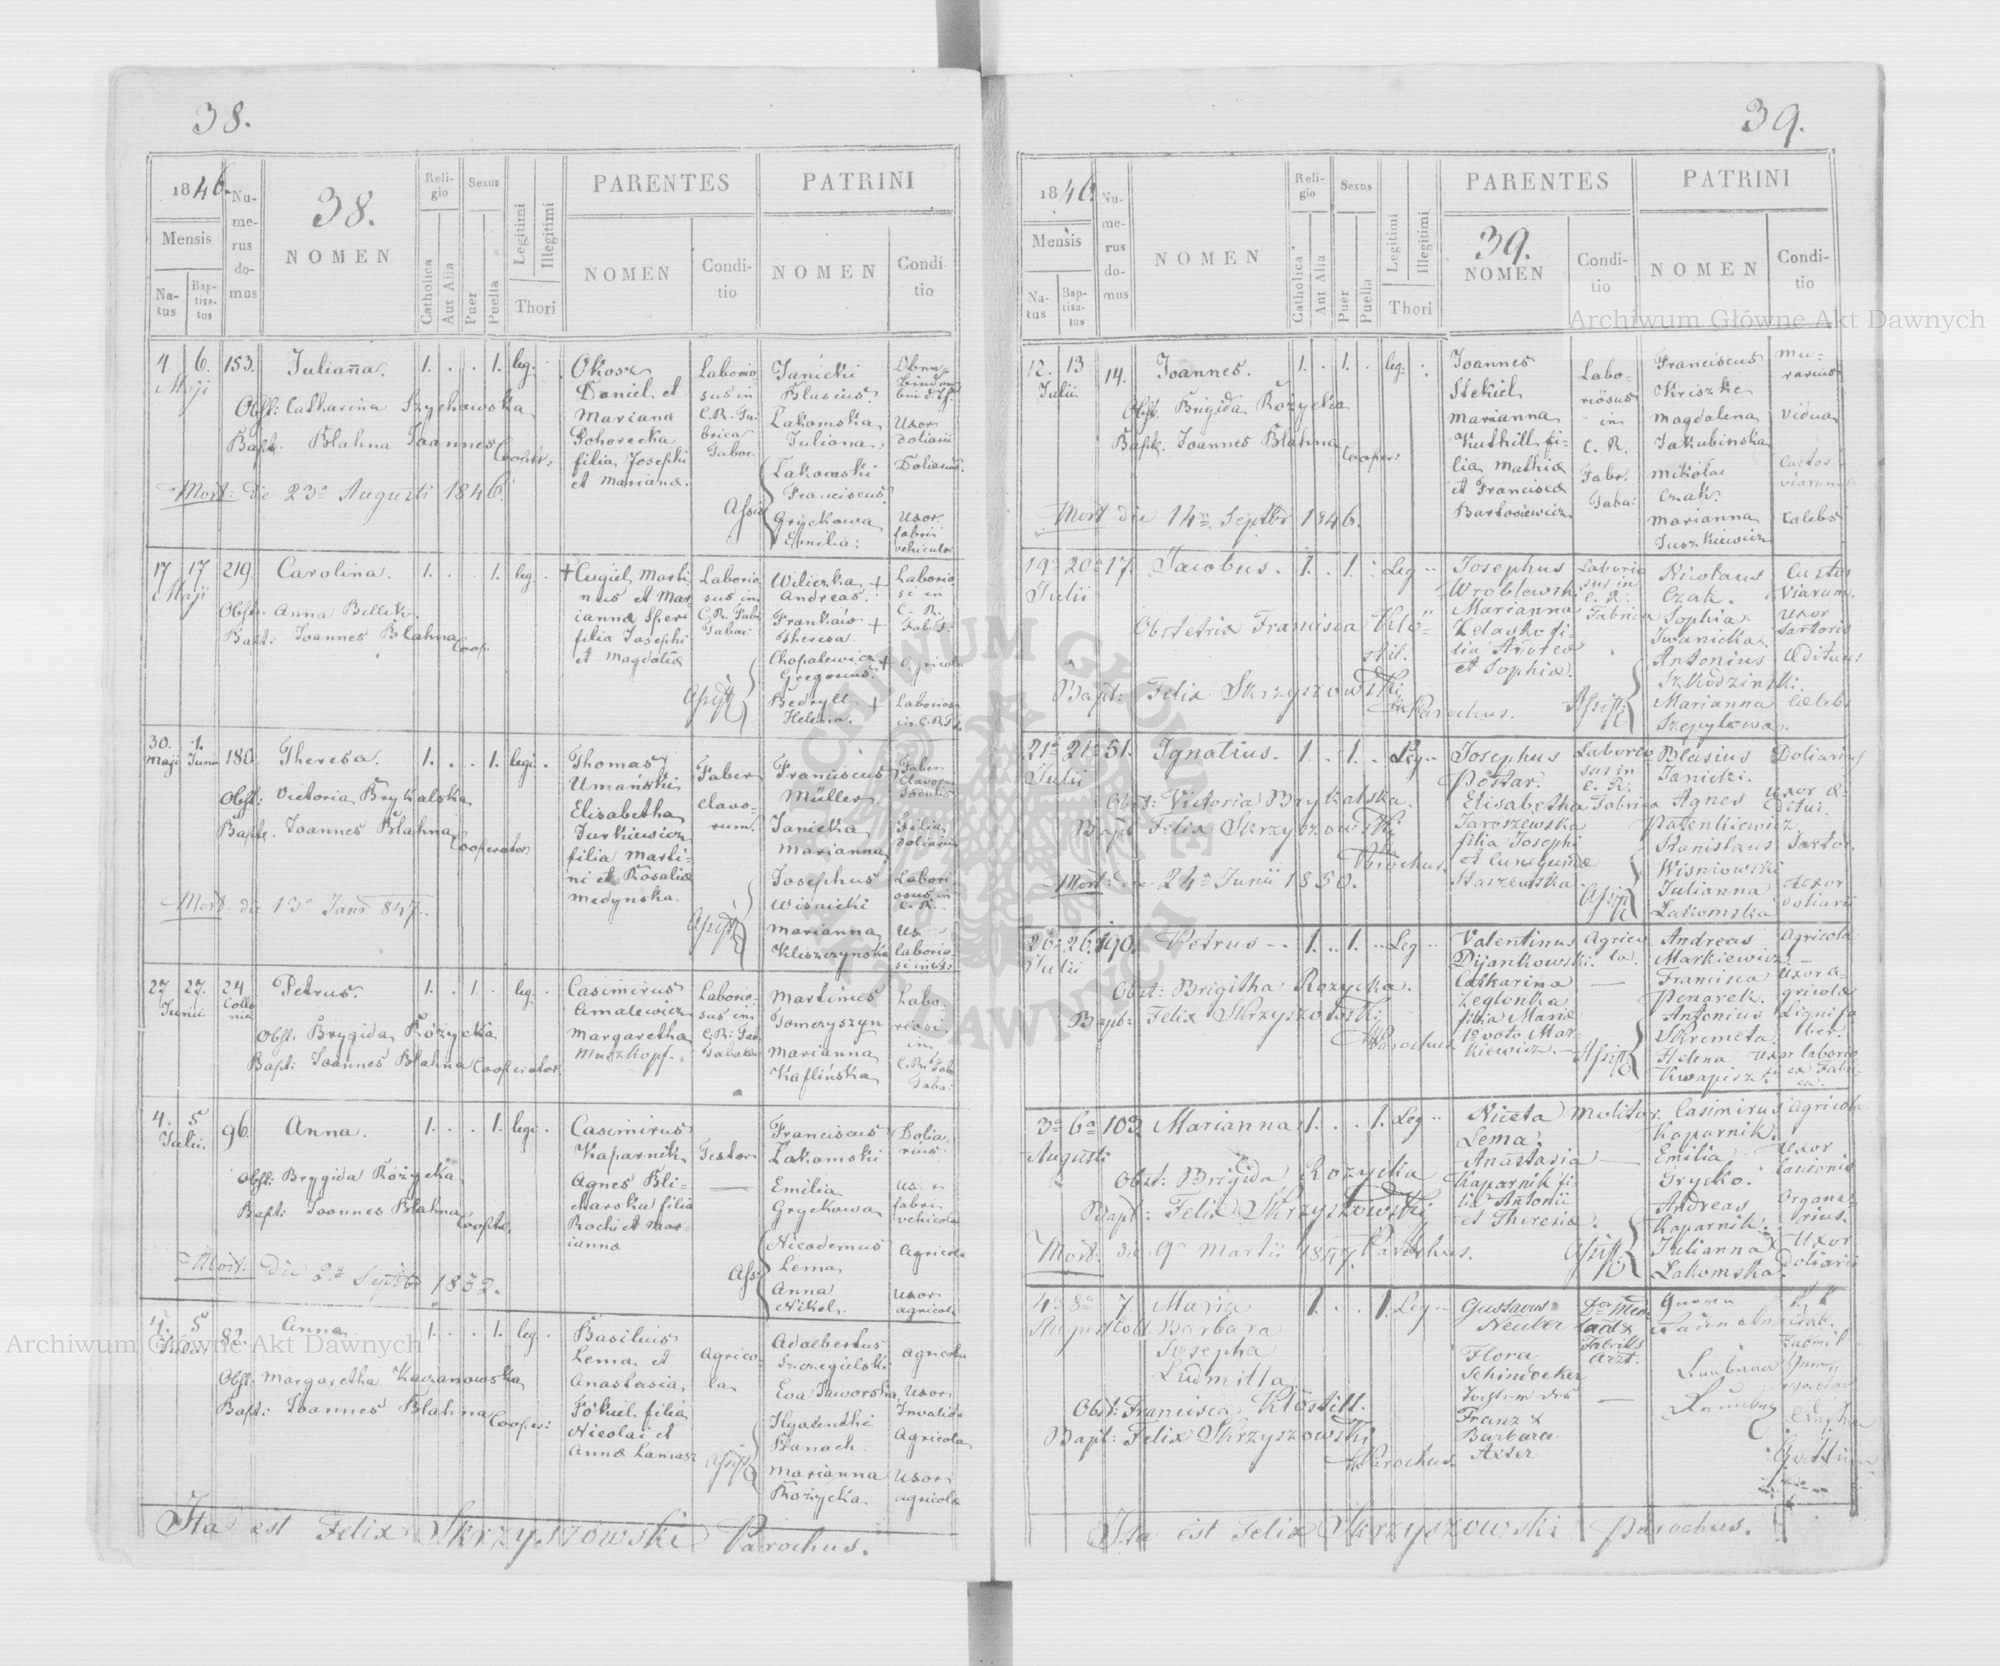 38.
1846.
Nu-
me-
rus
do-
mus
38.
NOMEN
Reli-
gio
Sexus
Legitimi
Illegitimi
PARENTES
PATRINI
Mensis
Na-
tus
Bap-
tisa-
tus
Catholica
Aut Alia
Puer
Puella
Thori
NOMEN
Condi-
tio
NOMEN
Condi-
tio
4. 6. 153. Julianna. 1. . . 1. leg. .
Maji
Obst: Catharina Szychowska
Bapt. Blahna Joannes Cooper:
Mort: die 23a Augusti 1846.
Okosz
Daniel et
Marianna
Pohorecka
filia Josephi
et Mariana.
Laborio-
sus in
C. R. Fa-
brica
Tabac.
Janicki
Blasius.
Lakomska
Juliana.
Lakomski
Franciscus.
Gryckowa
Emilia.
Assis
Uxor
doliarii
Doliarius.
Uxor
fabri
vehicular
17 17 219. Carolina. 1. . . 1. leg. .
Maji
Obst: Anna Bellek.
Bapt: Joannes Blahna Coop.
+ Cugiel Marti-
nus et Mar-
ianna Speri
filia Josephi
et Magdalena
Laborio
sus in
C. R. Fabr
Tabac:
Wiliczka +
Andreas.
Theresa
Chopalewicz +
Gregorius.
Bedryll +
Helena.
Assist
Laborio
si in
C. R.
Fab. T.
Agricola
Laborios
in C. R. F.
30. 1. 180. Theresa. 1. . . 1. legi. .
Maji Juni
Obst: Victoria Brykalska
Bapt. Joannes Blahna Cooperator
Mort: die 13a Janr 847.
Thomas
Umański
Elisabetha
Jurkiewicz
filia Marti-
ni et Rosalia
Medynska.
Faber
clavo-
rum.
Franciscus
Müller.
Janicka
Marianna
Josephus
Wiśnicki
Marianna
Kliszczynska
Assist
Filia
doliarii
Labori
osus in
C. R.
27 27. 24 Petrus. 1. . 1. . leg. .
Junii Collo
nia
Obst. Brygida Różycka
Bapt: Joannes Blahna Cooperator
Casimirus
Amalewicz
Margaretha
Muszkopf.
Laborio-
sus in
C. R. Fab
Tabac
Martinus
Tomczyszyn
Marianna
Kaflińska
Labo-
riosi
in
C. R. Fab
Taba:
4. 5 96. Anna. 1. . . 1. legi. .
Julii.
Obst: Brygida Różycka
Bapt: Joannes Blahna Coopta.
Mort: die 3a Septbr 1852.
Casimirus
Kaparnik
Agnes Bli-
charska filia
Rochi et Mar-
ianna
Textor
Franciscus
Lakomski
Emilia
Gryckowa
Nicodemus
Lema
Anna
Nikol.
Ass:
Dolia-
rius.
Uxor
fabri
vehicula
Agricola
Uxor
agricola
4. 5 82. Anna 1. . . 1. leg. .
Julii
Obst: Margaretha Kaczanowska
Bapt: Joannes Blahna Cooper:
Basilius
Lema et
Anastasia
Fókiel filia
Nicolai et
Anna Lamasz
Agrico-
la
Adalbertus
Szczegielski
Eva Jaworska
Hyacinthi
Banach.
Marianna
Rożycka.
Assist
Agricola
Uxor
Invalida
Agricola
Uxor
agricola
Ita est Felix Skrzyszowski Parochus.
39.
1846.
Nu-
me-
rus
do-
mus
NOMEN
Reli-
gio
Sexus
Legitimi
Illegitimi
PARENTES
PATRINI
Mensis
Na-
tus
Bap-
tisa-
tus
Catholica
Aut Alia
Puer
Puella
Thori
39.
NOMEN
Condi-
tio
NOMEN
Condi-
tio
12. 13 14. Joannes. 1. . 1. . leg. .
Julii
Obst. Brigida Rożycka
Bapt. Joannes Blahna Cooper:
Mort die 14a Septbr 1846.
Joannes
Stekiel
Marianna
Kuthill fi-
lia Mathia
et Francisca
Bartosiewicz
Labo-
riosus
in
C. R.
Fabr.
Taba:
Franciscus
Kriszke
Magdalena
Jakubinska
Mikołai
Czak.
Marianna
Juszkiewicz
Mu-
rarius
Vidua
Custos
viarum
Calebs
19a 20a 17. Jacobus. 1. . 1. . Leg -
Julii
Obstetrix Francisca Klö-
stil.
Bapt: Felix Skrzyszowski
Parochus.
Josephus
Wroblewski
Marianna
Zelasko fi-
lia Andrea
et Sophia.
Laborio
sus in
C. R.
Fabrica
Nicolaus
Czak.
Sophia
Iwanicka.
Antonius
Szkodzinski.
Marianna
Szepytowa.
Assist:
Custos
Viarum.
Uxor
Sartoris
Ædituus
Cælebs
21a 21a 51. Ignatius. 1. . 1. . Leg -
Julii
Obst: Victoria Brykalska.
Bapt Felix Skrzyszowski
Parochus.
Mort: die 24a Junii 1850.
Josephus
Postar.
Elisabetha
Jaroszewska
filia Josephi
et Cunegunda
Staszewska
Laborio
sus in
C. R.
Fabrica
Blasius
Janicki.
Agnes
Patenkiewicz
Stanislaus
Wisniowski
Julianna
Lakomska
Assist
Doliarius
Uxor Æ-
ditui.
Sartor.
Uxor
doliarii
26a 26. 190. Petrus - 1. . 1. . Leg -
Julii
Obst: Brigitha Rozycka.
Bapt: Felix Skrzyszowski
Parochus.
Valentinus
Dijankowski.
Catharina
Zeglonka
filia Maria
1o voto Mar-
kiewicz.
Agrico
la.
Andreas
Markiewicz.
Francisca
Penarek.
Antonius
Skremeta.
Helena
Kwapisz.
Assist:
Agricola
Uxor a-
gricola
Lignifa
ber.
Uxor laborio
3a 6a 103. Marianna 1. . . 1. Leg -
Augusti
Obst: Brigida Rozycka
Bapt: Felix Skrzyszowski
Parochus.
Mort: die 9a Martii 1847.
Niceta
Lema.
Anastasia
Kaparnik fi-
lia Antonii
et Theresia.
Molitor.
Casimirus
Kaparnik.
Emilia
Grycko.
Andreas
Kaparnik.
Julianna
Lakomska.
Assist:
Agricola
Uxor
Organa-
rius.
Uxor
Doliarii
4a 8a 7. Maria 1. . . 1. Leg -
August Coll. Barbara
Josepha
Ludmilla
Obst: Francisca Klöstill.
Bapt: Felix Skrzyszowski
Parochus.
Gustavus
Neuber
Flora
Schindecker
Tochter des
Franz &
Barbara
Axter
Fabriks
Arzt.
Ita est Felix Skrzyszowski Parochus.
Archiwum Główne Akt Dawnych
Archiwum Główne Akt Dawnych
ARCHIWUM GŁÓWNE AKT DAWNYCH